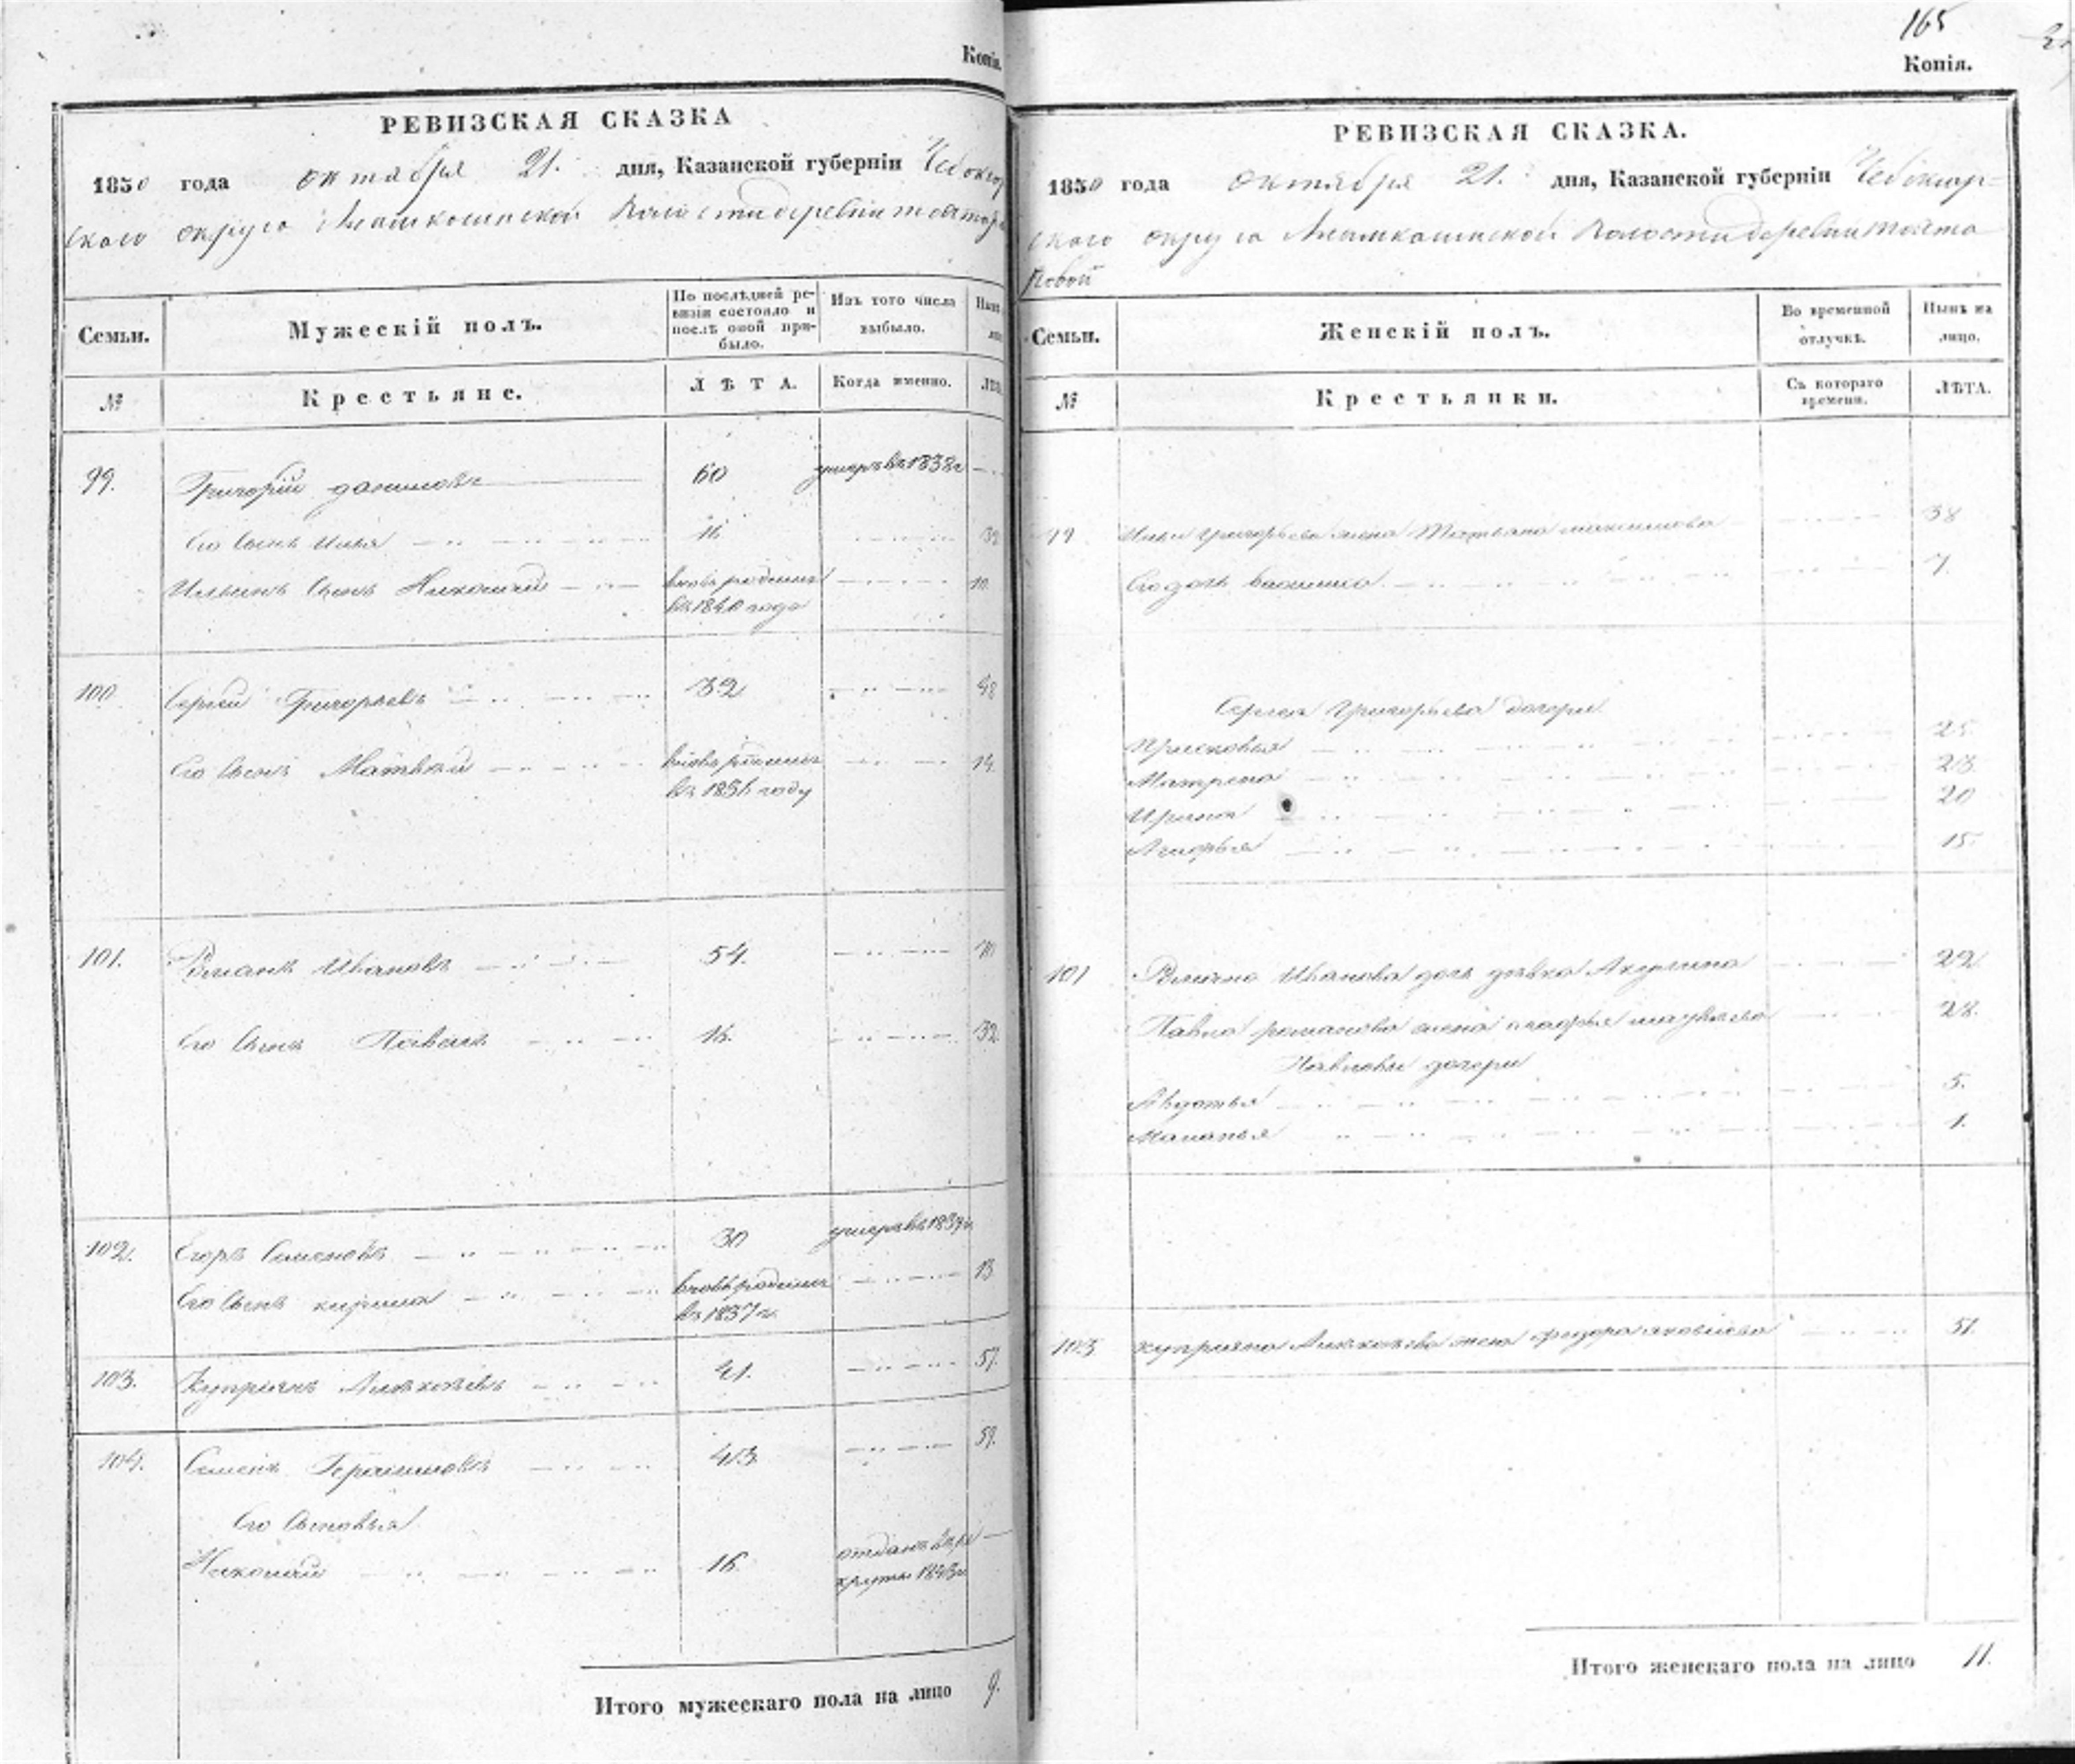 Копія.
РЕВИЗСКАЯ СКАЗКА
1850 года октября 21. дня, Казанской губерніи Чебоксар
скаго округа волости деревни
Семьи.
Мужескій полъ.
По послѣдней ре-
визіи состояло и
послѣ оной при-
было.
Изъ того числа
выбыло.
№
Крестьяне.
ЛѢТА.
Когда именно.
99. Григорій Даниловъ 60 умеръ въ 1838 г
Его сынъ Илья 16
Ильинъ сынъ Николай вновь рожденъ 10.
въ 1840 года
100 Сергѣй Григорьевъ 32 48
Его сынъ Матвѣй вновь рожденъ 14.
въ 1836 году
101. Романъ Ивановъ 54. 70
Его сынъ Павелъ 16. 32
102. Егоръ Семеновъ 30 умеръ въ 1839 г.
Его сынъ Кирила вновь рожденъ 13
въ 1837 г.
103. Купріянъ Алексѣевъ 41. 57.
104. Семенъ Герасимовъ 43 59.
Его сыновья
Николай 16. отданъ въ ре
круты 1843 г.
Итого мужескаго пола на лицо 9.
165
Копія.
РЕВИЗСКАЯ СКАЗКА.
1850 года октября 21. дня, Казанской губерніи Чебоксар-
скаго округа волости деревни
ровой
Семьи.
Женскій полъ.
Во временной
отлучкѣ.
Нынѣ на
лицо.
№
Крестьянки.
Съ котораго
времени.
ЛѢТА.
99 Ильи Григорьева жена Татьяна Максимова 38
Его дочь Василиса 7.
Сергея Григорьева дочери
Прасковья 25
Матрена 23
Ирина 20
15.
101 Романа Иванова дочь дѣвка Акулина 22
Павла Романова жена 28.
Павловы дочери
Авдотья 5.
Маланья 1.
103 Купріяна Алексѣева жена Федора Яковлева 51
Итого женскаго пола на лицо 11.